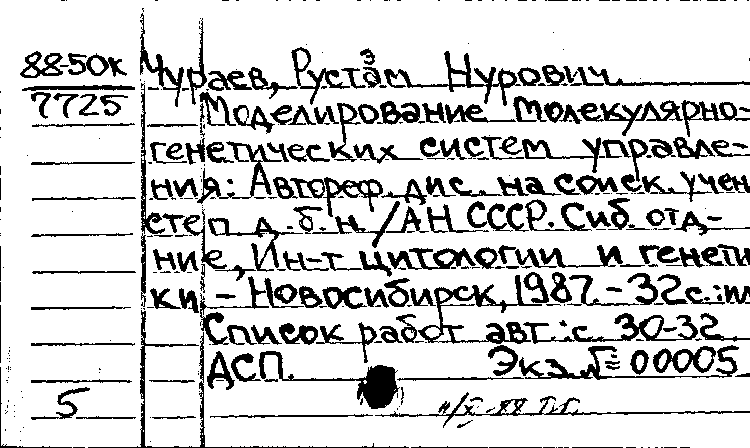 88-50к Чураев, Рустам Нурович.
7725 Моделирование молекулярно-
генетических систем управле-
ния: Автореф. дис. на соиск. учен
степ д.б.н. / АН СССР. Сиб. отд-
ние, Ин-т цитологии и генети
ки. - Новосибирск, 1987. - 32 с.: ил
Список работ авт.: с. 30-32
ДСП. Экз. № 00005
5